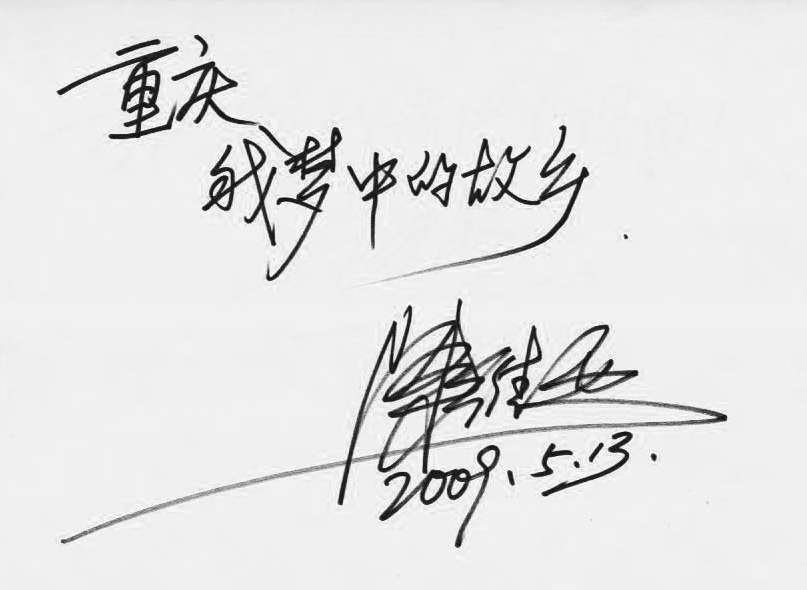 重庆
我梦中的故乡.
2009.5.13.